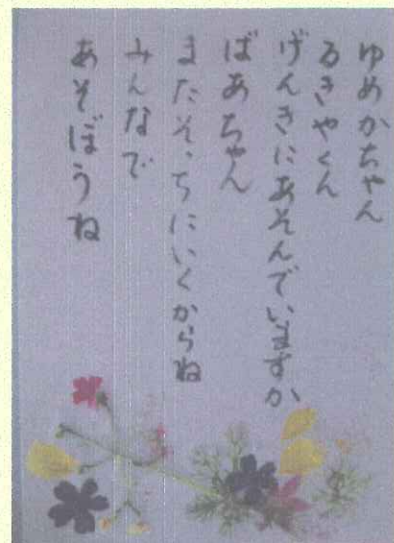 ゆめかちゃん
るきやくん
げんきにあそんでいますか
ばあちゃん
またそっちにいくからね
みんなで
あそぼうね